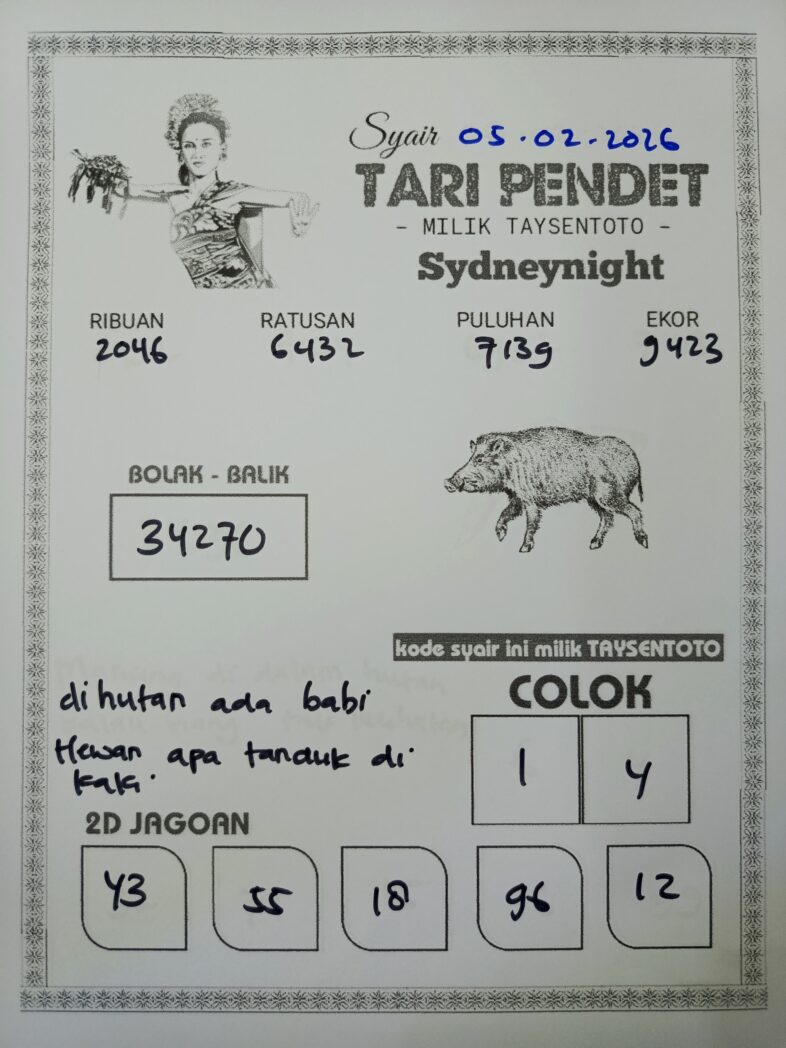 Syair 05.02.2026
TARI PENDET
- MILIK TAYSENTOTO -
Sydneynight
RIBUAN RATUSAN PULUHAN EKOR
2046 6432 7139 9423
BOLAK - BALIK
34270
kode syair ini milik TAYSENTOTO
di hutan ada babi
Hewan apa tanduk di
kaki.
COLOK
1 4
2D JAGOAN
43 55 18 96 12